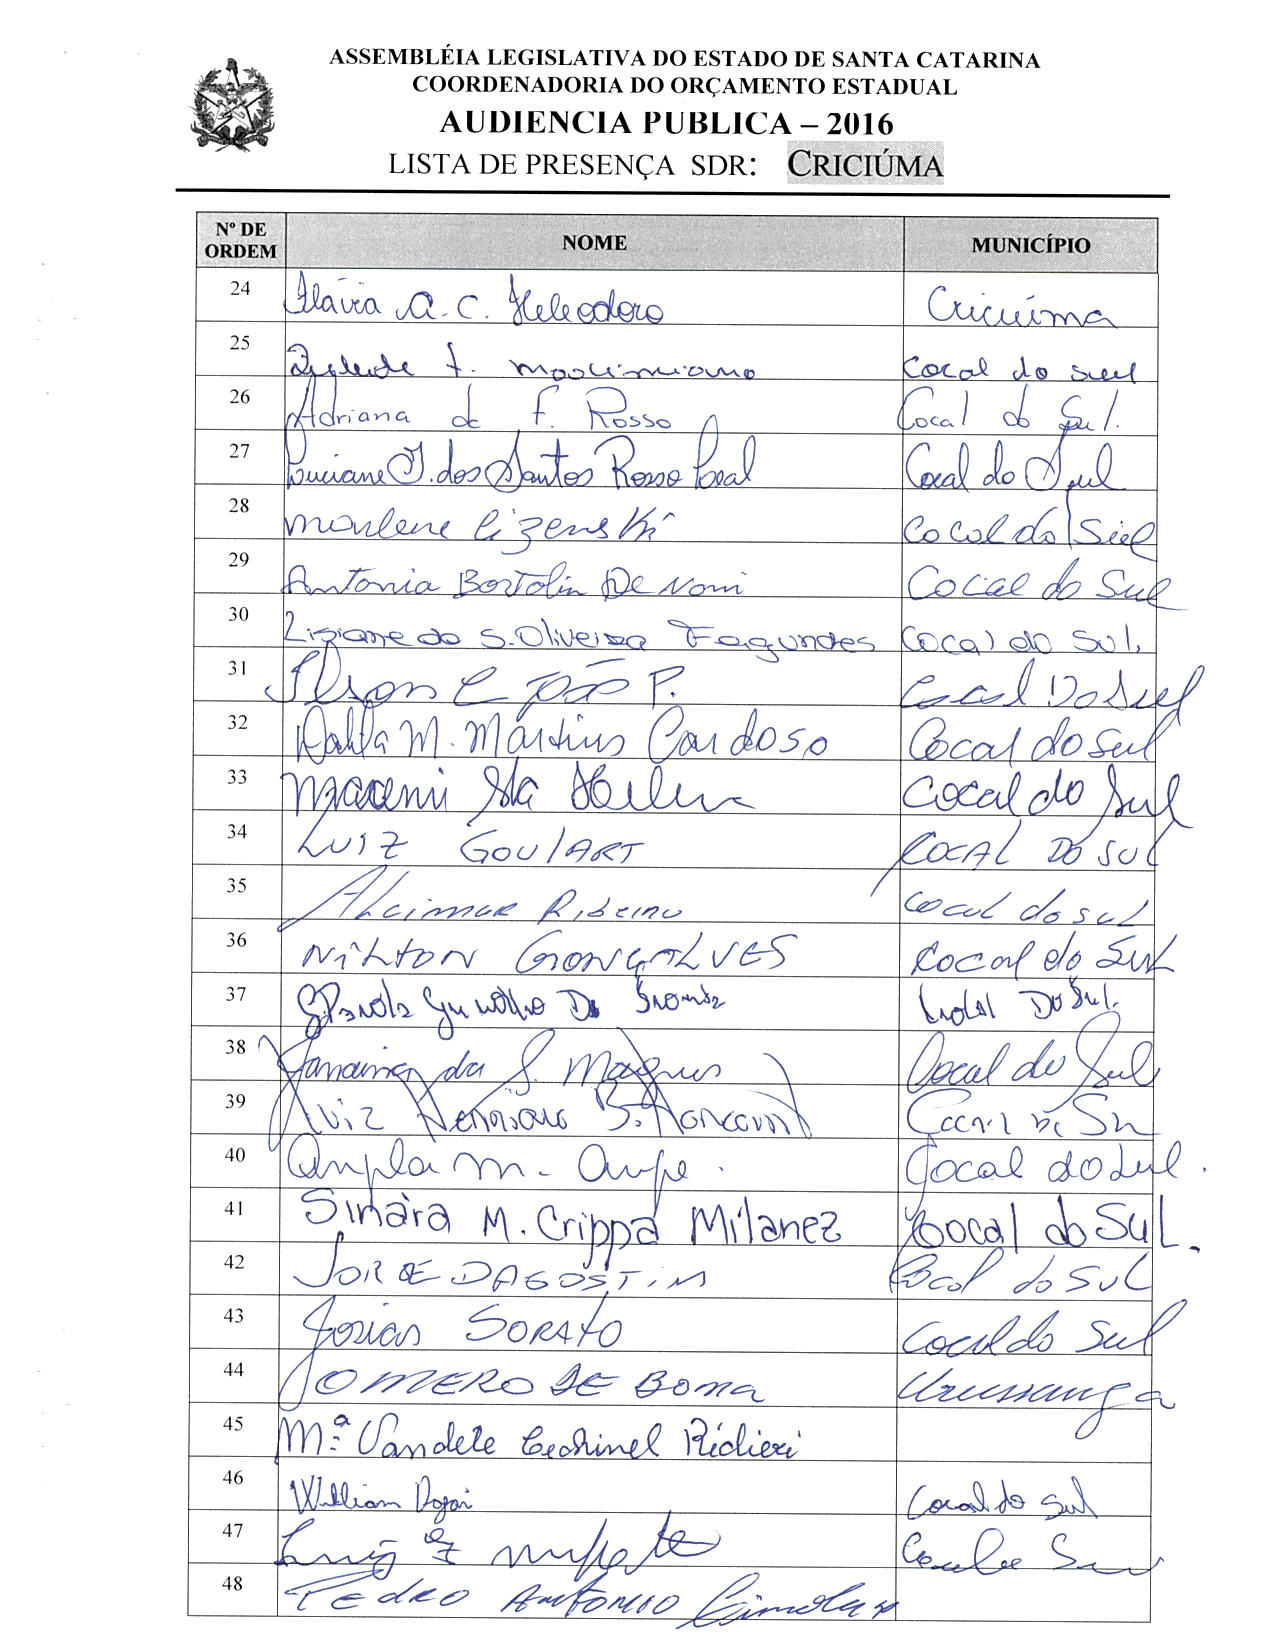 ASSEMBLÉIA LEGISLATIVA DO ESTADO DE SANTA CATARINA
COORDENADORIA DO ORÇAMENTO ESTADUAL
AUDIENCIA PUBLICA – 2016
LISTA DE PRESENÇA SDR: CRICIÚMA
Nº DE ORDEM NOME MUNICÍPIO
24 Flávia A. C. Heleodoro Criciúma
25 F. Cocal do Sul
26 Adriana de F. Rosso Cocal do Sul.
27 Luciane J. dos Santos Rosso Cocal do Sul
28 Marlene Lizenski Cocal do Sul
29 Antonia Bortolin De Noni Cocal do Sul
30 Lisiane do S. Oliveira Fagundes Cocal do Sul.
31 João P. Cocal Do Sul
32 Dahla M. Martins Cardoso Cocal do Sul
33 Cocal do Sul
34 LUIZ GOULART COCAL DO SUL
35 Alcimar Ribeiro Cocal do sul
36 NILTON GONÇALVES Cocal do SUL
37 Do Sul.
38 Janaina da S. Magnus Cocal do Sul
39 Luiz Henrique B.
40 m. Cocal do Sul.
41 Sinàra M. Crippa Milanez Cocal do SUL.
42 JORGE DAGOSTIM Cocal do SUL
43 Josias SORATO Cocal do Sul
44 JOMERO DE BONA Urussanga
45 Mª Vandete Cechinel
46 William Cocal do Sul
47
48 PEDRO ANTONIO